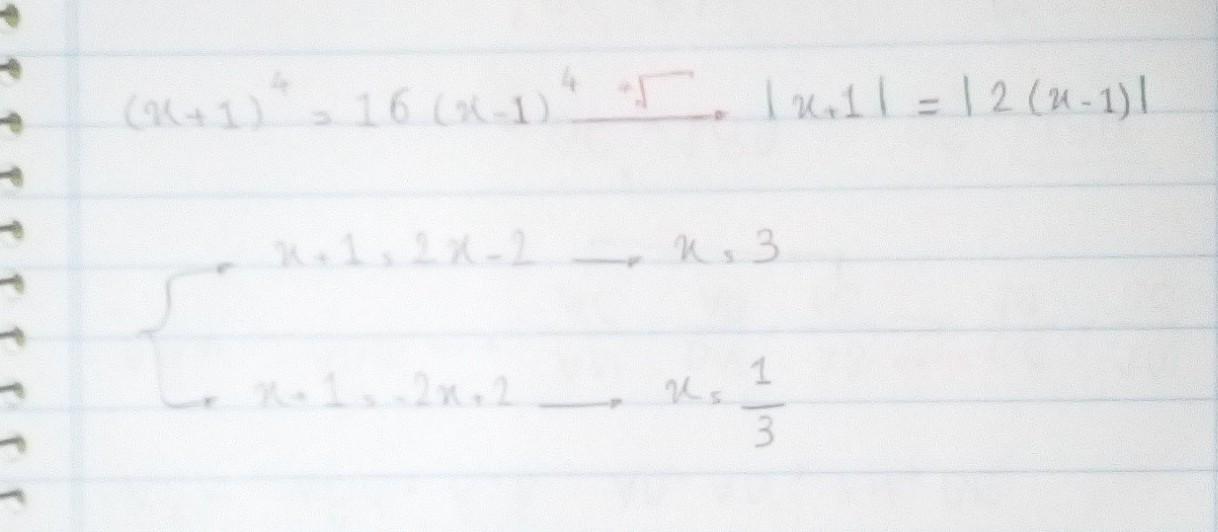 (x+1)^4 = 16(x-1)^4 ⟶ ∜ |x+1| = |2(x-1)|
x+1 = 2x-2 → x = 3
x+1 = -2x+2 → x = 1/3